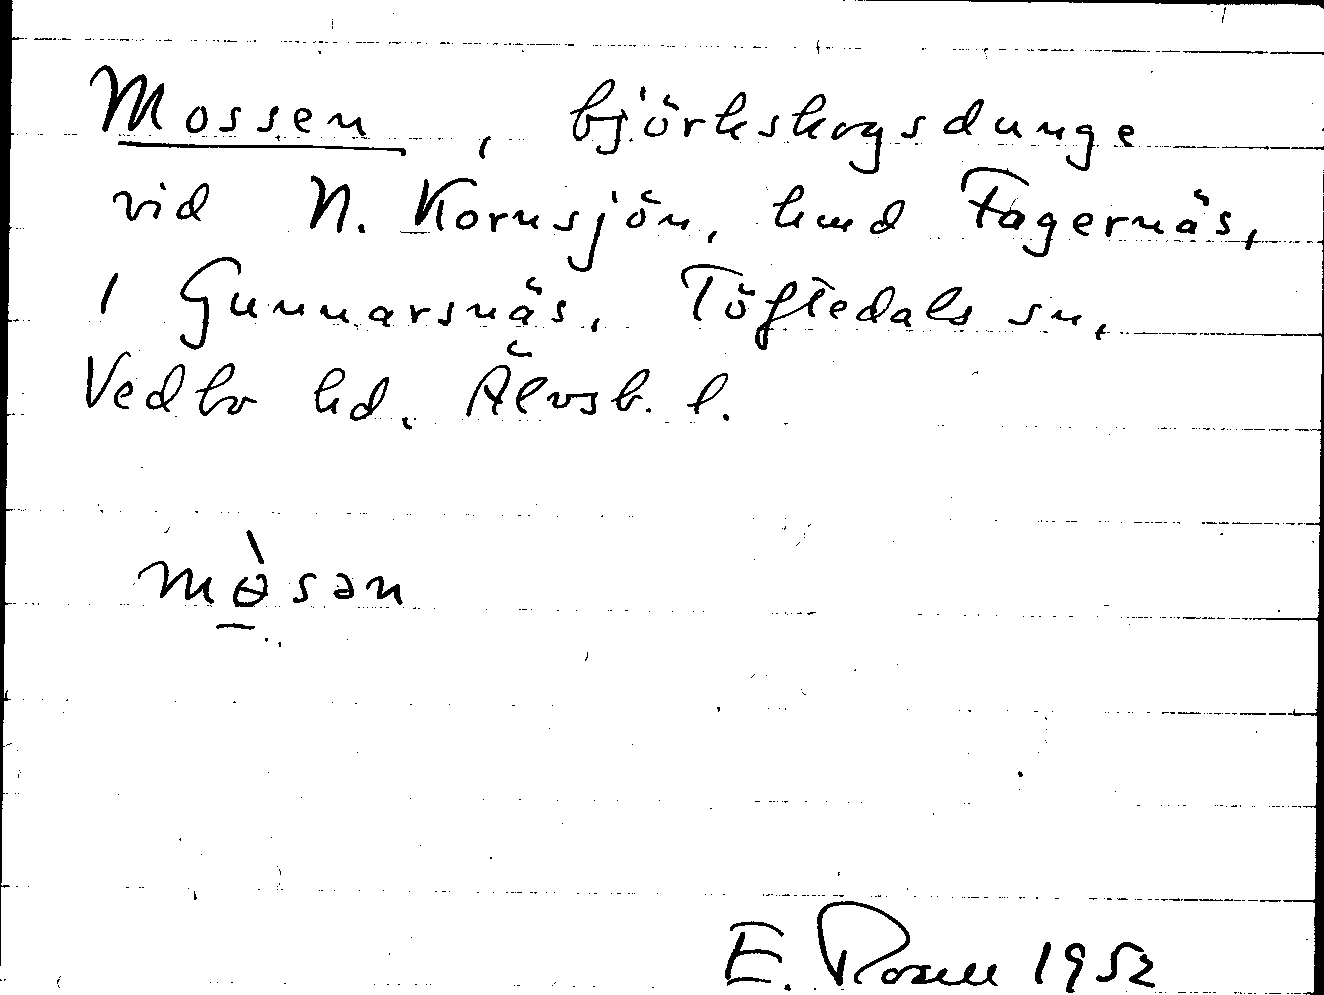 Mossen, björkskogsdunge
vid N. Kornsjön, hmd Fagernäs,
1 Gunnarsnäs, Töftedals sn,
Vedbo hd. Älvsb. l.
mɵ̀sən
E. Rosell 1952